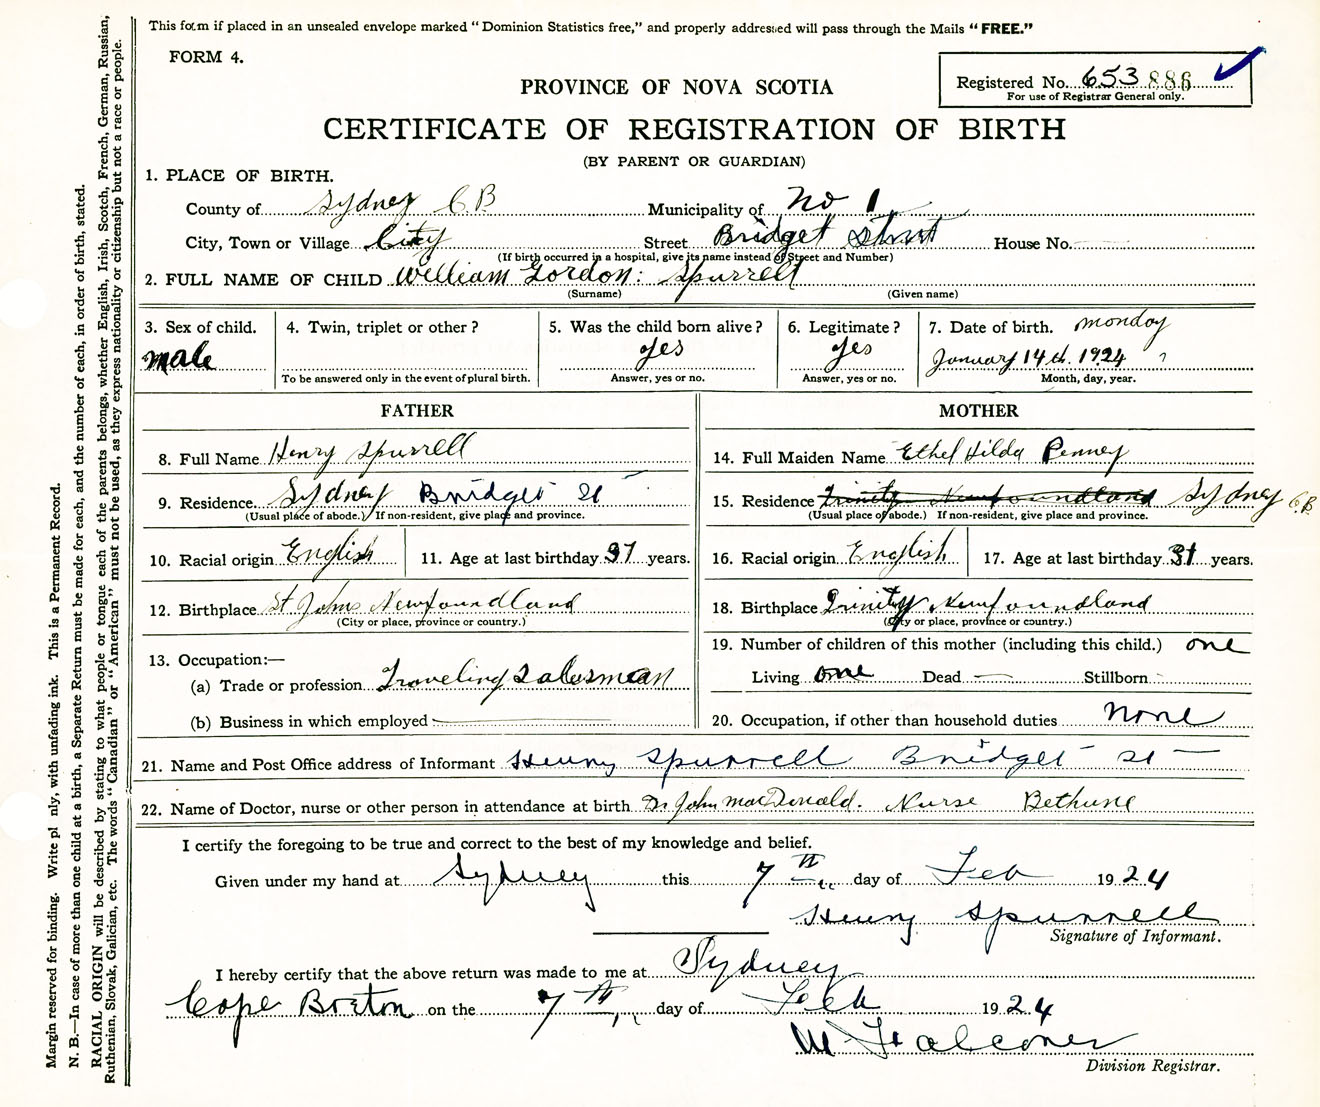 This form if placed in an unsealed envelope marked "Dominion Statistics free," and properly addressed will pass through the Mails "FREE."
FORM 4.
Registered No. 653 886
For use of Registrar General only.
PROVINCE OF NOVA SCOTIA
CERTIFICATE OF REGISTRATION OF BIRTH
(BY PARENT OR GUARDIAN)
1. PLACE OF BIRTH.
County of Sydney C.B Municipality of No 1
City, Town or Village City Street Bridget Street House No.
(If birth occurred in a hospital, give its name instead of Street and Number)
2. FULL NAME OF CHILD William Gordon: Spurrell
(Surname) (Given name)
3. Sex of child. 4. Twin, triplet or other? 5. Was the child born alive? 6. Legitimate? 7. Date of birth. monday
male yes yes January 14th. 1924 ?
To be answered only in the event of plural birth. Answer, yes or no. Answer, yes or no. Month, day, year.
FATHER MOTHER
8. Full Name Henry Spurrell 14. Full Maiden Name Ethel Hilda Penney
9. Residence Sydney Bridget St 15. Residence Trinity Newfoundland Sydney C.B
(Usual place of abode.) If non-resident, give place and province. (Usual place of abode.) If non-resident, give place and province.
10. Racial origin English 11. Age at last birthday 37 years. 16. Racial origin English 17. Age at last birthday 31 years.
12. Birthplace St Johns Newfoundland 18. Birthplace Trinity Newfoundland
(City or place, province or country.) (City or place, province or country.)
13. Occupation:— 19. Number of children of this mother (including this child.) one
(a) Trade or profession Traveling Salesman Living one Dead — Stillborn
(b) Business in which employed 20. Occupation, if other than household duties None
21. Name and Post Office address of Informant Henry Spurrell Bridget St
22. Name of Doctor, nurse or other person in attendance at birth Dr John MacDonald. Nurse Bethune
I certify the foregoing to be true and correct to the best of my knowledge and belief.
Given under my hand at Sydney this 7th day of Feb 1924
Henry Spurrell
Signature of Informant.
I hereby certify that the above return was made to me at Sydney
Cape Breton on the 7th day of Feb 1924
Falconer
Division Registrar.
Margin reserved for binding. Write pl nly, with unfading ink. This is a Permanent Record.
N. B.—In case of more than one child at a birth, a Separate Return must be made for each, and the number of each, in order of birth, stated.
RACIAL ORIGIN will be described by stating to what people or tongue each of the parents belongs, whether English, Irish, Scotch, French, German, Russian,
Ruthenian, Slovak, Galician, etc. The words "Canadian" or "American" must not be used, as they express nationality or citizenship but not a race or people.